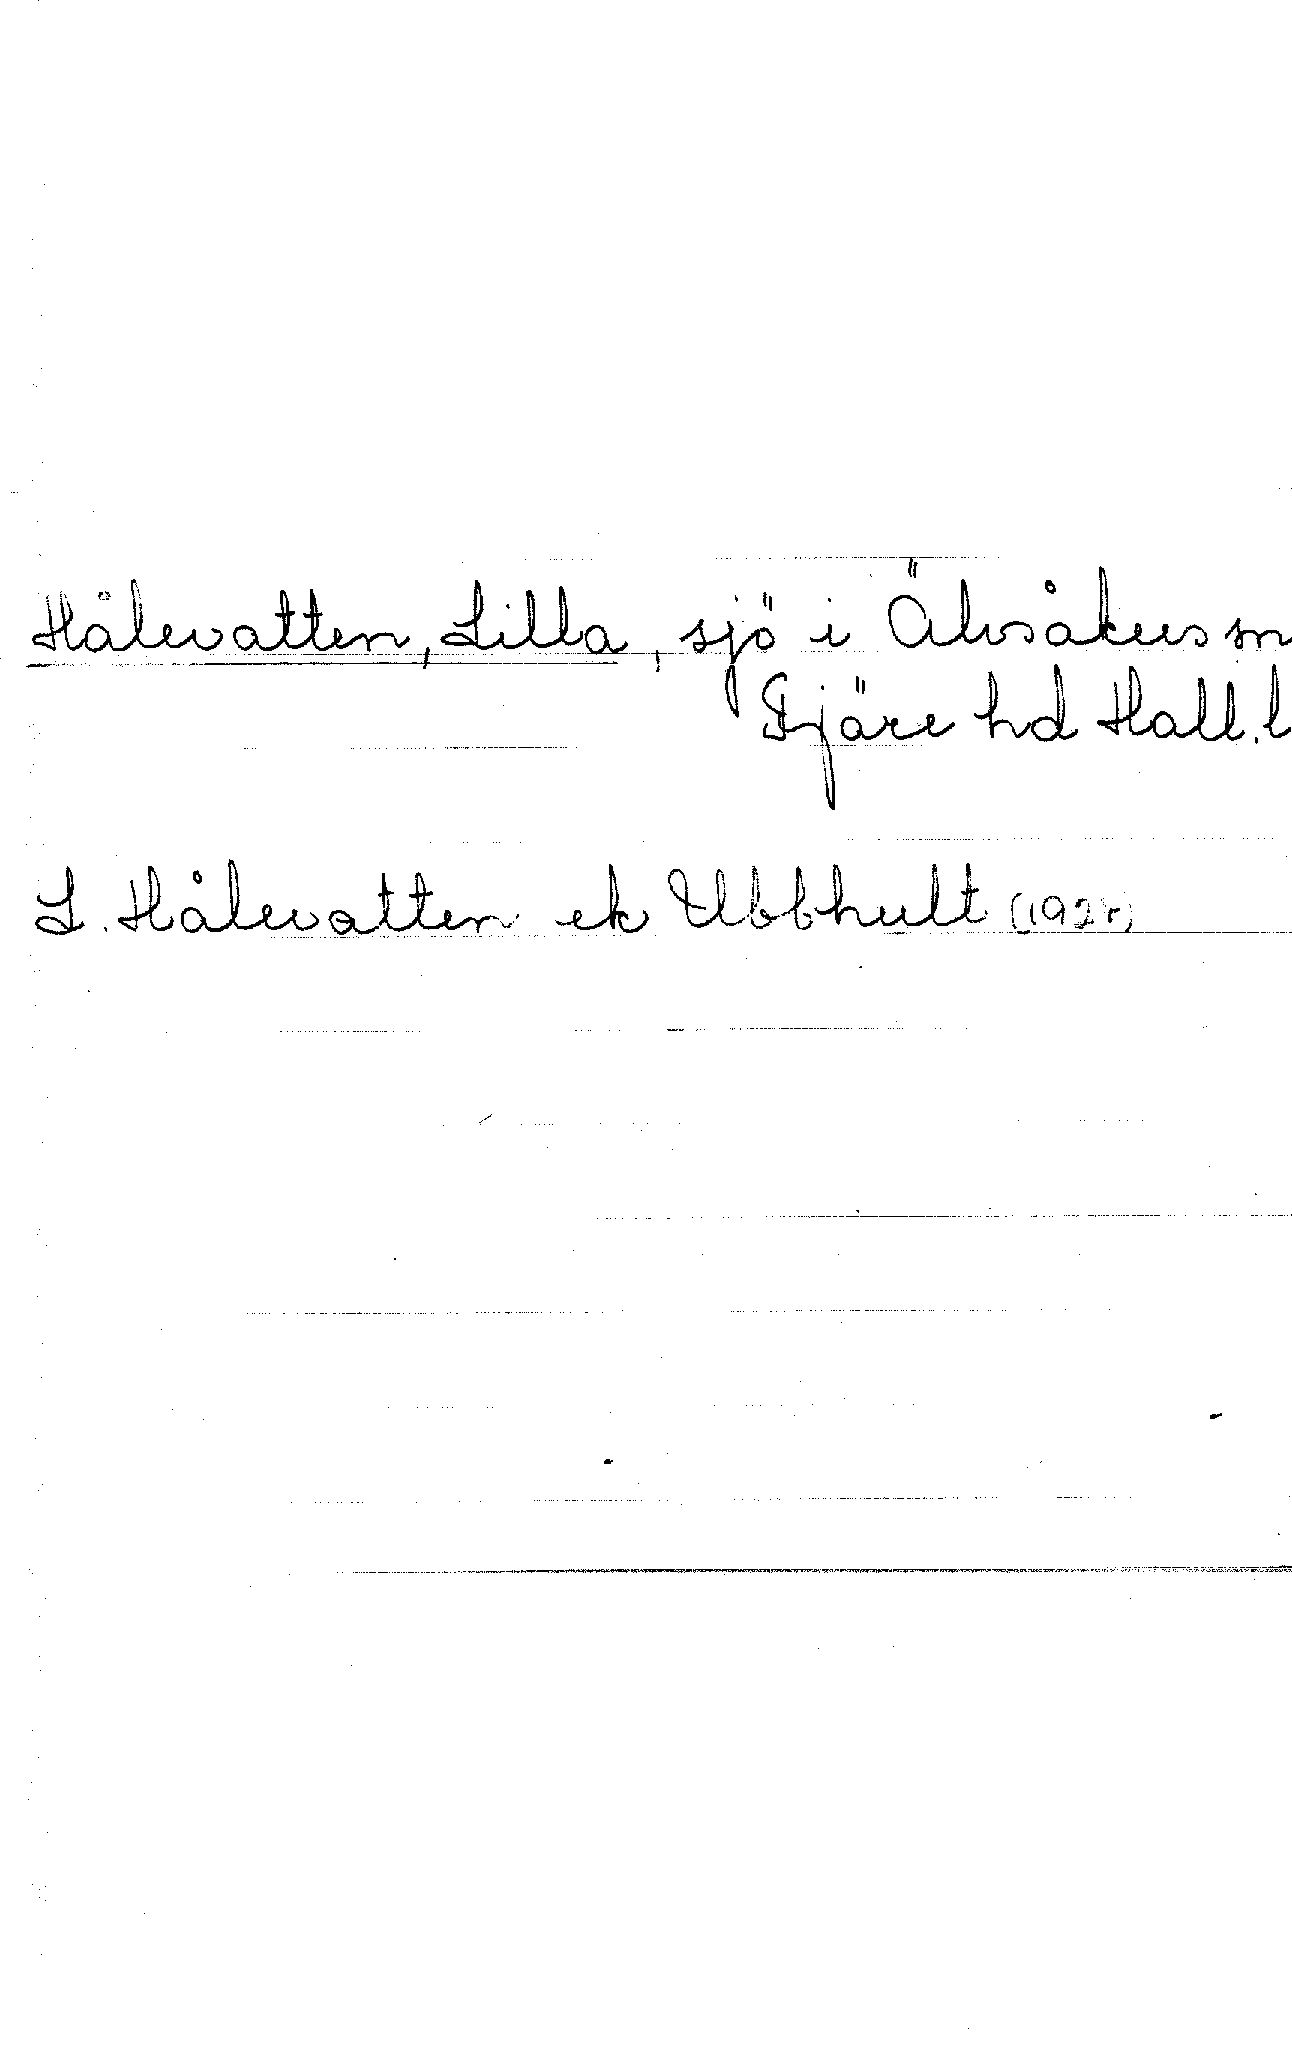 Hålevatten, Lilla, sjö i Älvsåkers sn
Fjäre hd Hall.l
L. Hålevatten ek Ubbhult